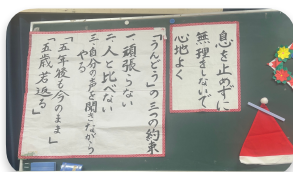 息を止めずに
無理をしないで
心地よく
「うんどう」の三つの約束
一、頑張らない
二、人と比べない
三、自分の声を聞きながら
やる
「五年後も今のまま」
「五歳若返る」